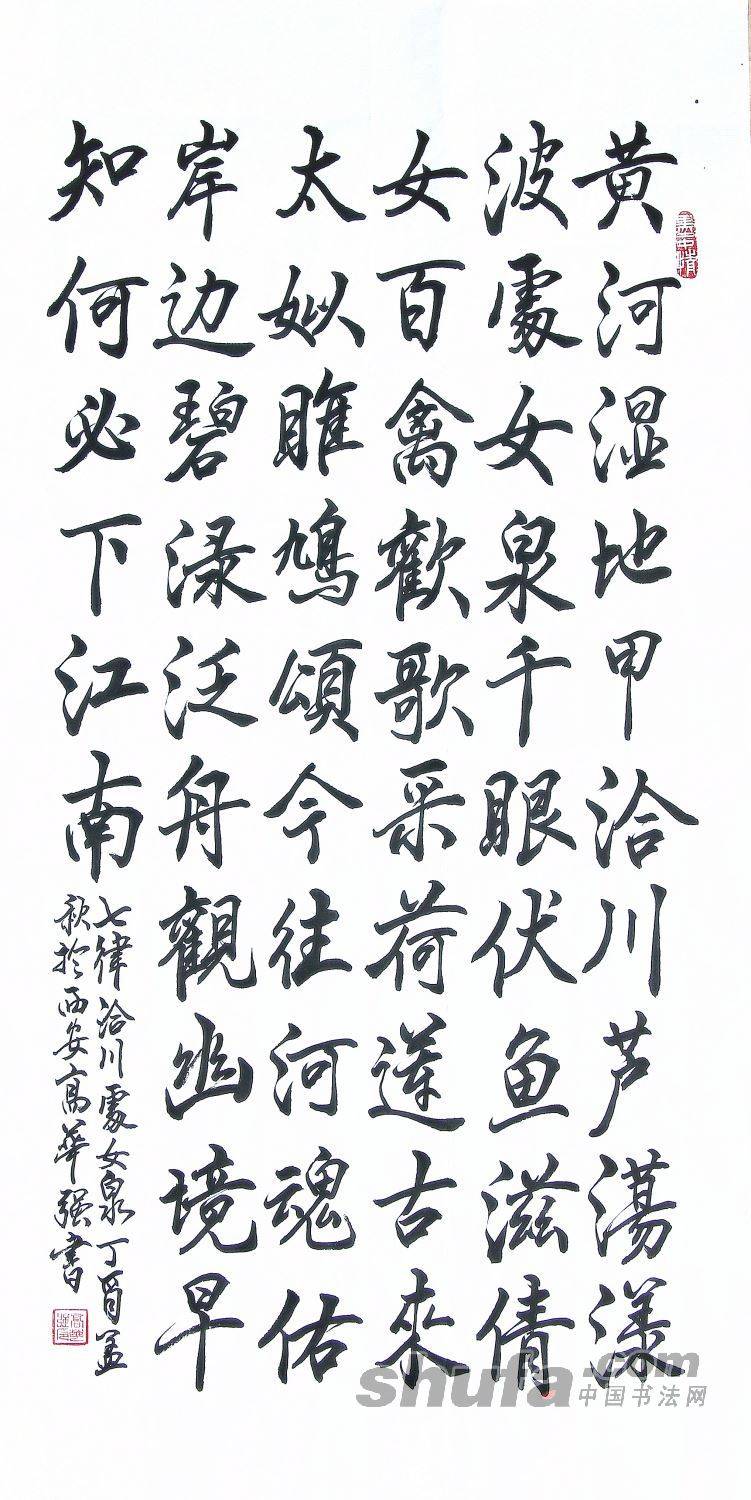 黃河湿地甲洽川芦蕩漾
波處女泉千眼伏鱼滋倩
女百禽歡歌采荷蓮古來
太姒雎鳩頌今往河魂佑
岸边碧渌泛舟觀幽境早
知何必下江南
七律洽川處女泉丁酉孟
秋於西安高華强書
shufa.com
中国书法网